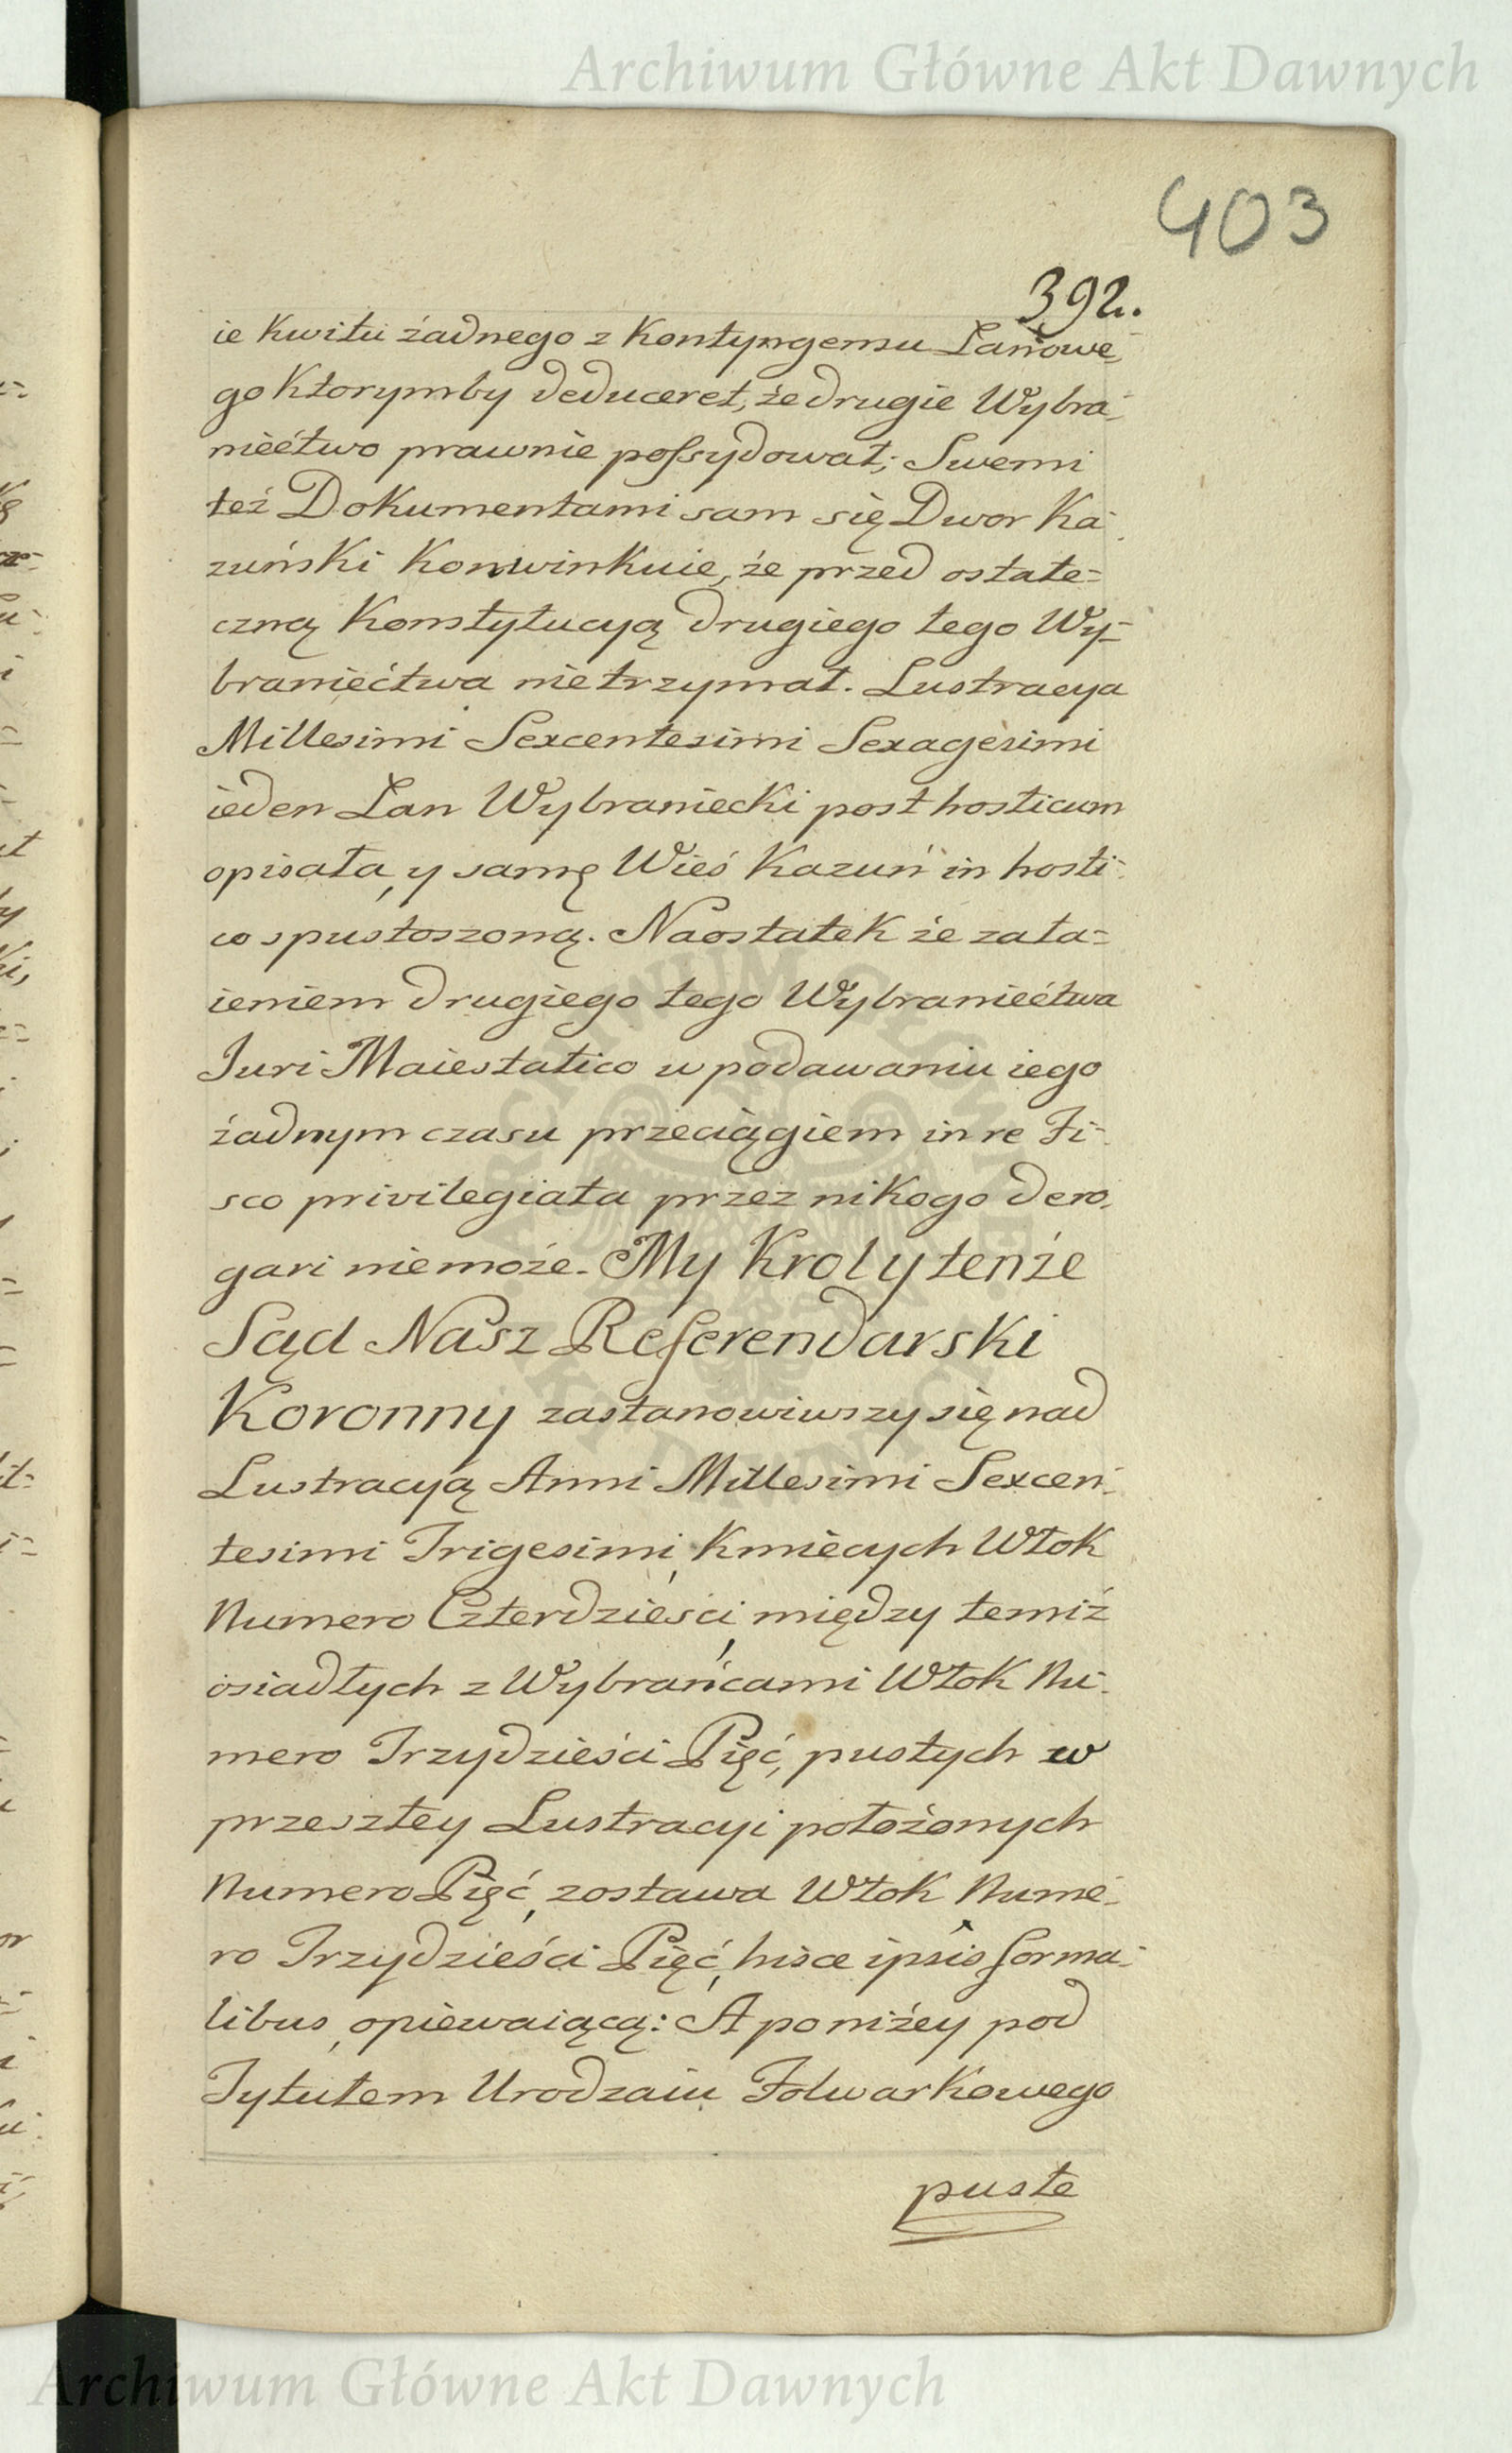 Archiwum Główne Akt Dawnych
403
392.
ie Kwitu żadnego z Kontyngensu Łanowe-
go Ktorymby deduceret, że drugie Wybra-
niectwo prawnie possydował; Swemi
też Dokumentami sam się Dwor Ka-
zuński Konwinkuie, że przed ostate=
czną Konstytucyą drugiego tego Wy=
braniectwa nie trzymał. Lustracya
Millesimi Sexcentesimi Sexagesimi
ieden Łan Wybraniecki post hosticum
opisała, y samę Wieś Kazuń in hosti-
co spustoszoną. Naostatek że zata=
ieniem drugiego tego Wybraniectwa
Juri Maiestatico w podawaniu iego
żadnym czasu przeciągiem in re Fi-
sco privilegiata przez nikogo dero-
gari niemoże. My Krol y tenże
Sąd Nasz Referendarski
Koronny zastanowiwszy się nad
Lustracyą Anni Millesimi Sexcen-
tesimi Trigesimi, Kmiecych Włok
Numero Czterdzieści, między temiż
osiadłych z Wybrańcami Włok Nu-
mero Trzydzieści Pięć, pustych w
przeszłey Lustracyi położonych
Numero Pięć, zostawa Włok Nume-
ro Trzydzieści Pięć, hisce ipsis forma-
libus, opiewaiącą: A poniżey pod
Tytułem Urodzaiu Folwarkowego
puste
Archiwum Główne Akt Dawnych